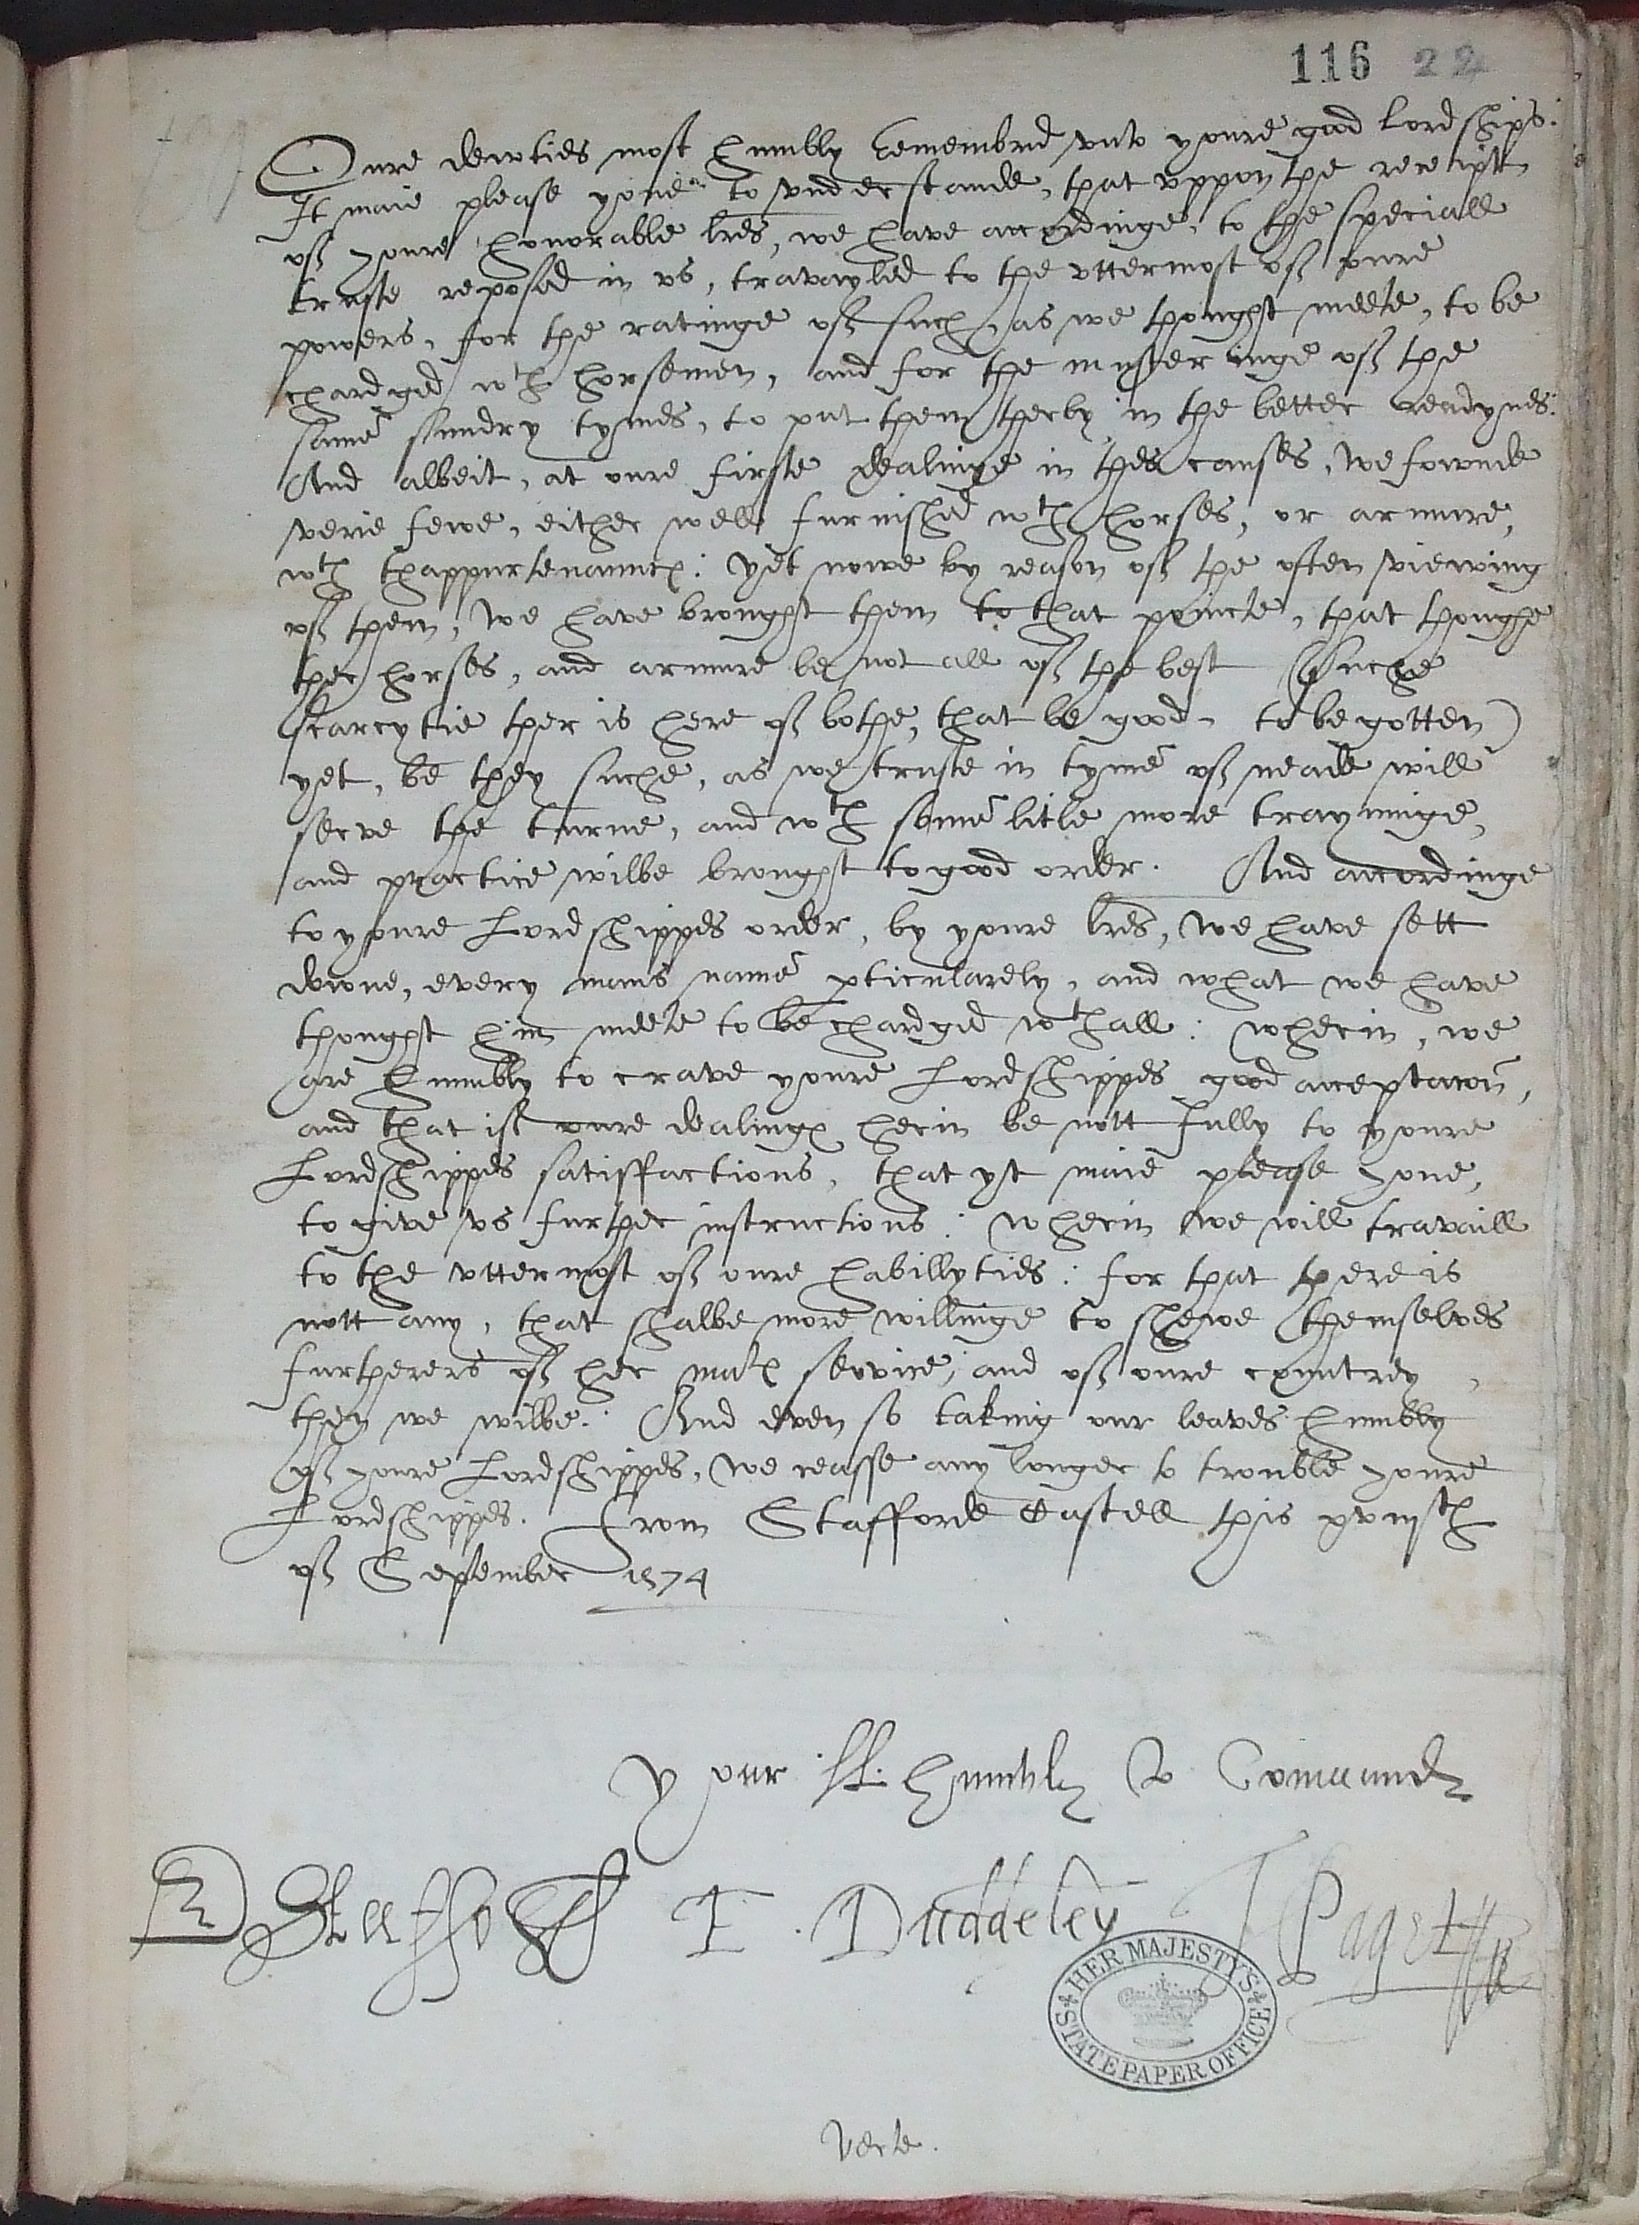 116 22
Oure dewties most humbly Remembrid vnto youre good Lordships:
It maie please youe to vnderstande, that vppon the receipte
off youre honorable lres, we have accordinge, to the speciall
truste reposed in vs, travayled to the vttermost off oure
powers, for the ratinge off such, as we thought meete, to be
chardged wth horsemen, and for the musteringe off the
same sundry tymes, to put them therby in the better readynes:
And albeit, at oure firste dealinge in thes causes, we fownde
verie fewe, either well furnished wth horses, or armure,
wth thappurtenaunces: yet nowe by reason off the often viewing
off them, we have brought them to that poincte, that thoughe
ther horses, and armure be not all off the best (suche
scarcytie ther is here off bothe, that be good, to be gotten)
yet, be they suche, as we truste in tyme off neade will
serve the turne, and wth some litle more trayninge,
and practice wilbe brought to good order. And accordinge
to youre Lordshippes order, by youre lres, we have sett
downe, every mans name pticularely, and what we have
thought him meete to be chardged wthall: wherin, we
are humbly to crave youre Lordshippes good acceptacon,
and that iff oure dealinges herin be nott fully to youre
Lordshippes satisffactions, that yt maie please youe,
to give vs further instructions: wherin we will travaill
to the vttermost off oure habillyties: for that there is
nott any, that shalbe more willinge to shewe themselves
furtherers off her maties service, and off oure countrey,
then we wilbe. And even so taking our leaves humbly
off youre Lordshippes, we ceasse any longer to trouble youre
Lordshippes. From Stafforde Castell this xviijth
off September 1574
Your LL. humbly to Comaunde
E Stafford E. Duddeley T Paget
HER MAJESTY'S STATE PAPER OFFICE
Verte.